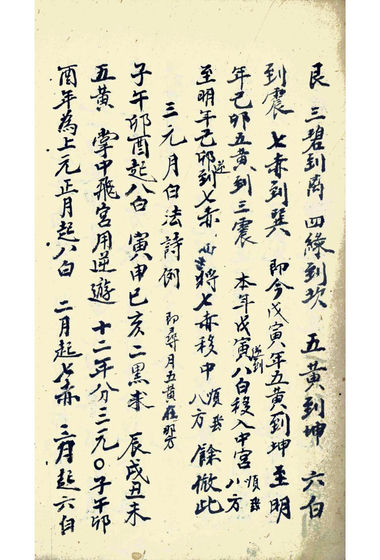 艮 三碧到离 四綠到坎 五黄到坤 六白
到震 七赤到巽 即今戊寅年五黄到坤至明
年己卯五黄到三震 本年戊寅遊到八白移入中宫順飛八方
至明年己卯遊到七赤 將七赤移中順飛八方 餘倣此
三元月白法詩例 即尋月五黄在
子午卯酉起八白 寅申巳亥二黑求 辰戌丑未
五黄 掌中飛宫用逆遊 十二年分三元〇子午卯
酉年為上元正月起八白 二月起七赤 三月起六白